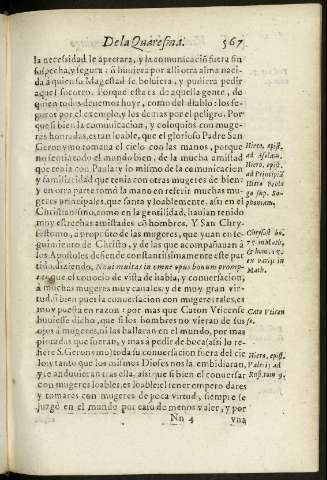 De la Quaresma. 567
la necessidad le apretara, y la comunicaciõ fuera sin
sospecha, y segura: õ huuiera por alli otra alma naci-
da à quien su Magestad se boluiera, y pudiera pedir
aquel socorro. Porque esta es de aquella gente, de
quien todos deuemos huyr, como del diablo: los se-
guros por el exemplo, y los demas por el peligro. Por
que si bien la comunicacion, y coloquios con muge-
res honradas, estan loable, que el glorioso Padre San
Geronymo romana el cielo con las manos, porque
no sentia todo el mundo bien, de la mucha amistad
que tenia con Paula: y lo mismo de la comunicacion
y familiaridad que tenia con otras mugeres de bien:
y en otra parte tomò la mano en referir muchas mu-
geres principales, que santa y loablemente, assi en el
Christianismo, como en la gentilidad, hauian tenido
muy estrechas amistades cõ hombres. Y San Chry-
sostomo, a proposito de las mugeres, que yuan en se-
guimiento de Christo, y de las que acompañauan à
los Apostoles defiende constantissimamente este par
tido, diziendo,
que el conocio de vista de habla, y conuersacion,
à muchas mugeres muy canales, y de muy gran vir-
tud: si bien pues la conuersacion con mugeres tales, es
muy puesta en razon: por mas que Caton Vticense
huuiesse dicho, que si los hombres no vieran de sus
ojos à mugeres, ni las hallaran en el mundo, por mas
pintadas que fueran, y mas à pedir de boca (assi lo re-
fiere S. Geronymo) toda su conuersacion fuera del cie
lo: y tanto que los mismos Dioses nos la embidiaran,
y se anduuieran tras ella, assi que si bien el conuersar
con mugeres loables, es loable: el tener empero dares
y tomares con mugeres de poca virtud, siempre se
juzgò en el mundo por caso de menos valer, y por
Nn 4 vna
Hiero. epist.
ad Asellam.
Hiero. epist.
ad Principiã
Hiero. prolo
go sup. So-
phoniam.
Chrysost. ho.
in Math.
& hom.
ex varijs in
Math.
Cato Vticen
se.
Hiero. epist.
ad